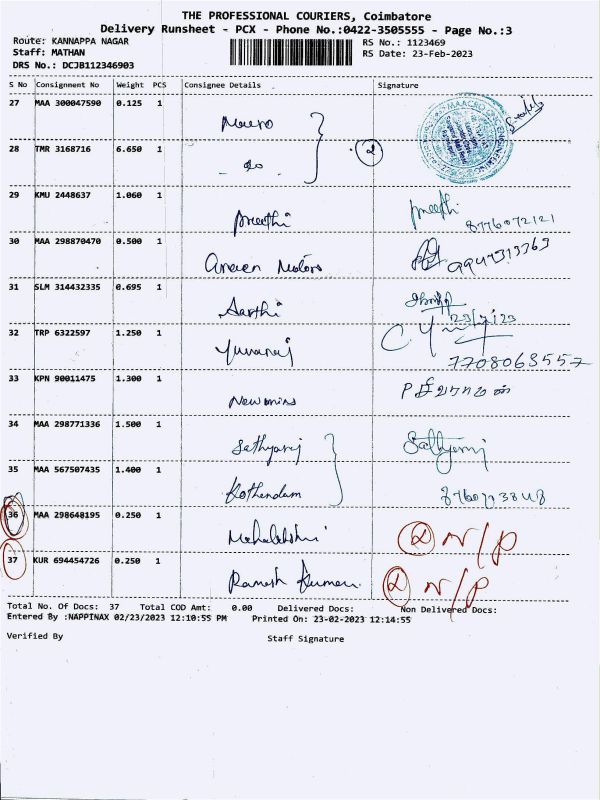 THE PROFESSIONAL COURIERS, Coimbatore
Delivery Runsheet - PCX - Phone No.:0422-3505555 - Page No.:3
Route: KANNAPPA NAGAR
Staff: MATHAN
DRS No.: DCJB112346903
RS No.: 1123469
RS Date: 23-Feb-2023
S No Consignment No Weight PCS Consignee Details Signature
27 MAA 300047590 0.125 1
28 TMR 3168716 6.650 1 - do - 2
29 KMU 2448637 1.060 1 Preethi Preethi
8776072121
30 MAA 298870470 0.500 1 Motors
31 SLM 314432335 0.695 1 Aarthi
32 TRP 6322597 1.250 1 Yuvaraj
7708063557
33 KPN 90011475 1.300 1
34 MAA 298771336 1.500 1 Sathyaraj
35 MAA 567507435 1.400 1 Kothandam
36 MAA 298648195 0.250 1 Mahalakshmi 2 N/P
37 KUR 694454726 0.250 1 Ramesh Kumar 2 N/P
Total No. Of Docs: 37 Total COD Amt: 0.00 Delivered Docs: Non Delivered Docs:
Entered By :NAPPINAX 02/23/2023 12:10:55 PM Printed On: 23-02-2023 12:14:55
Verified By Staff Signature